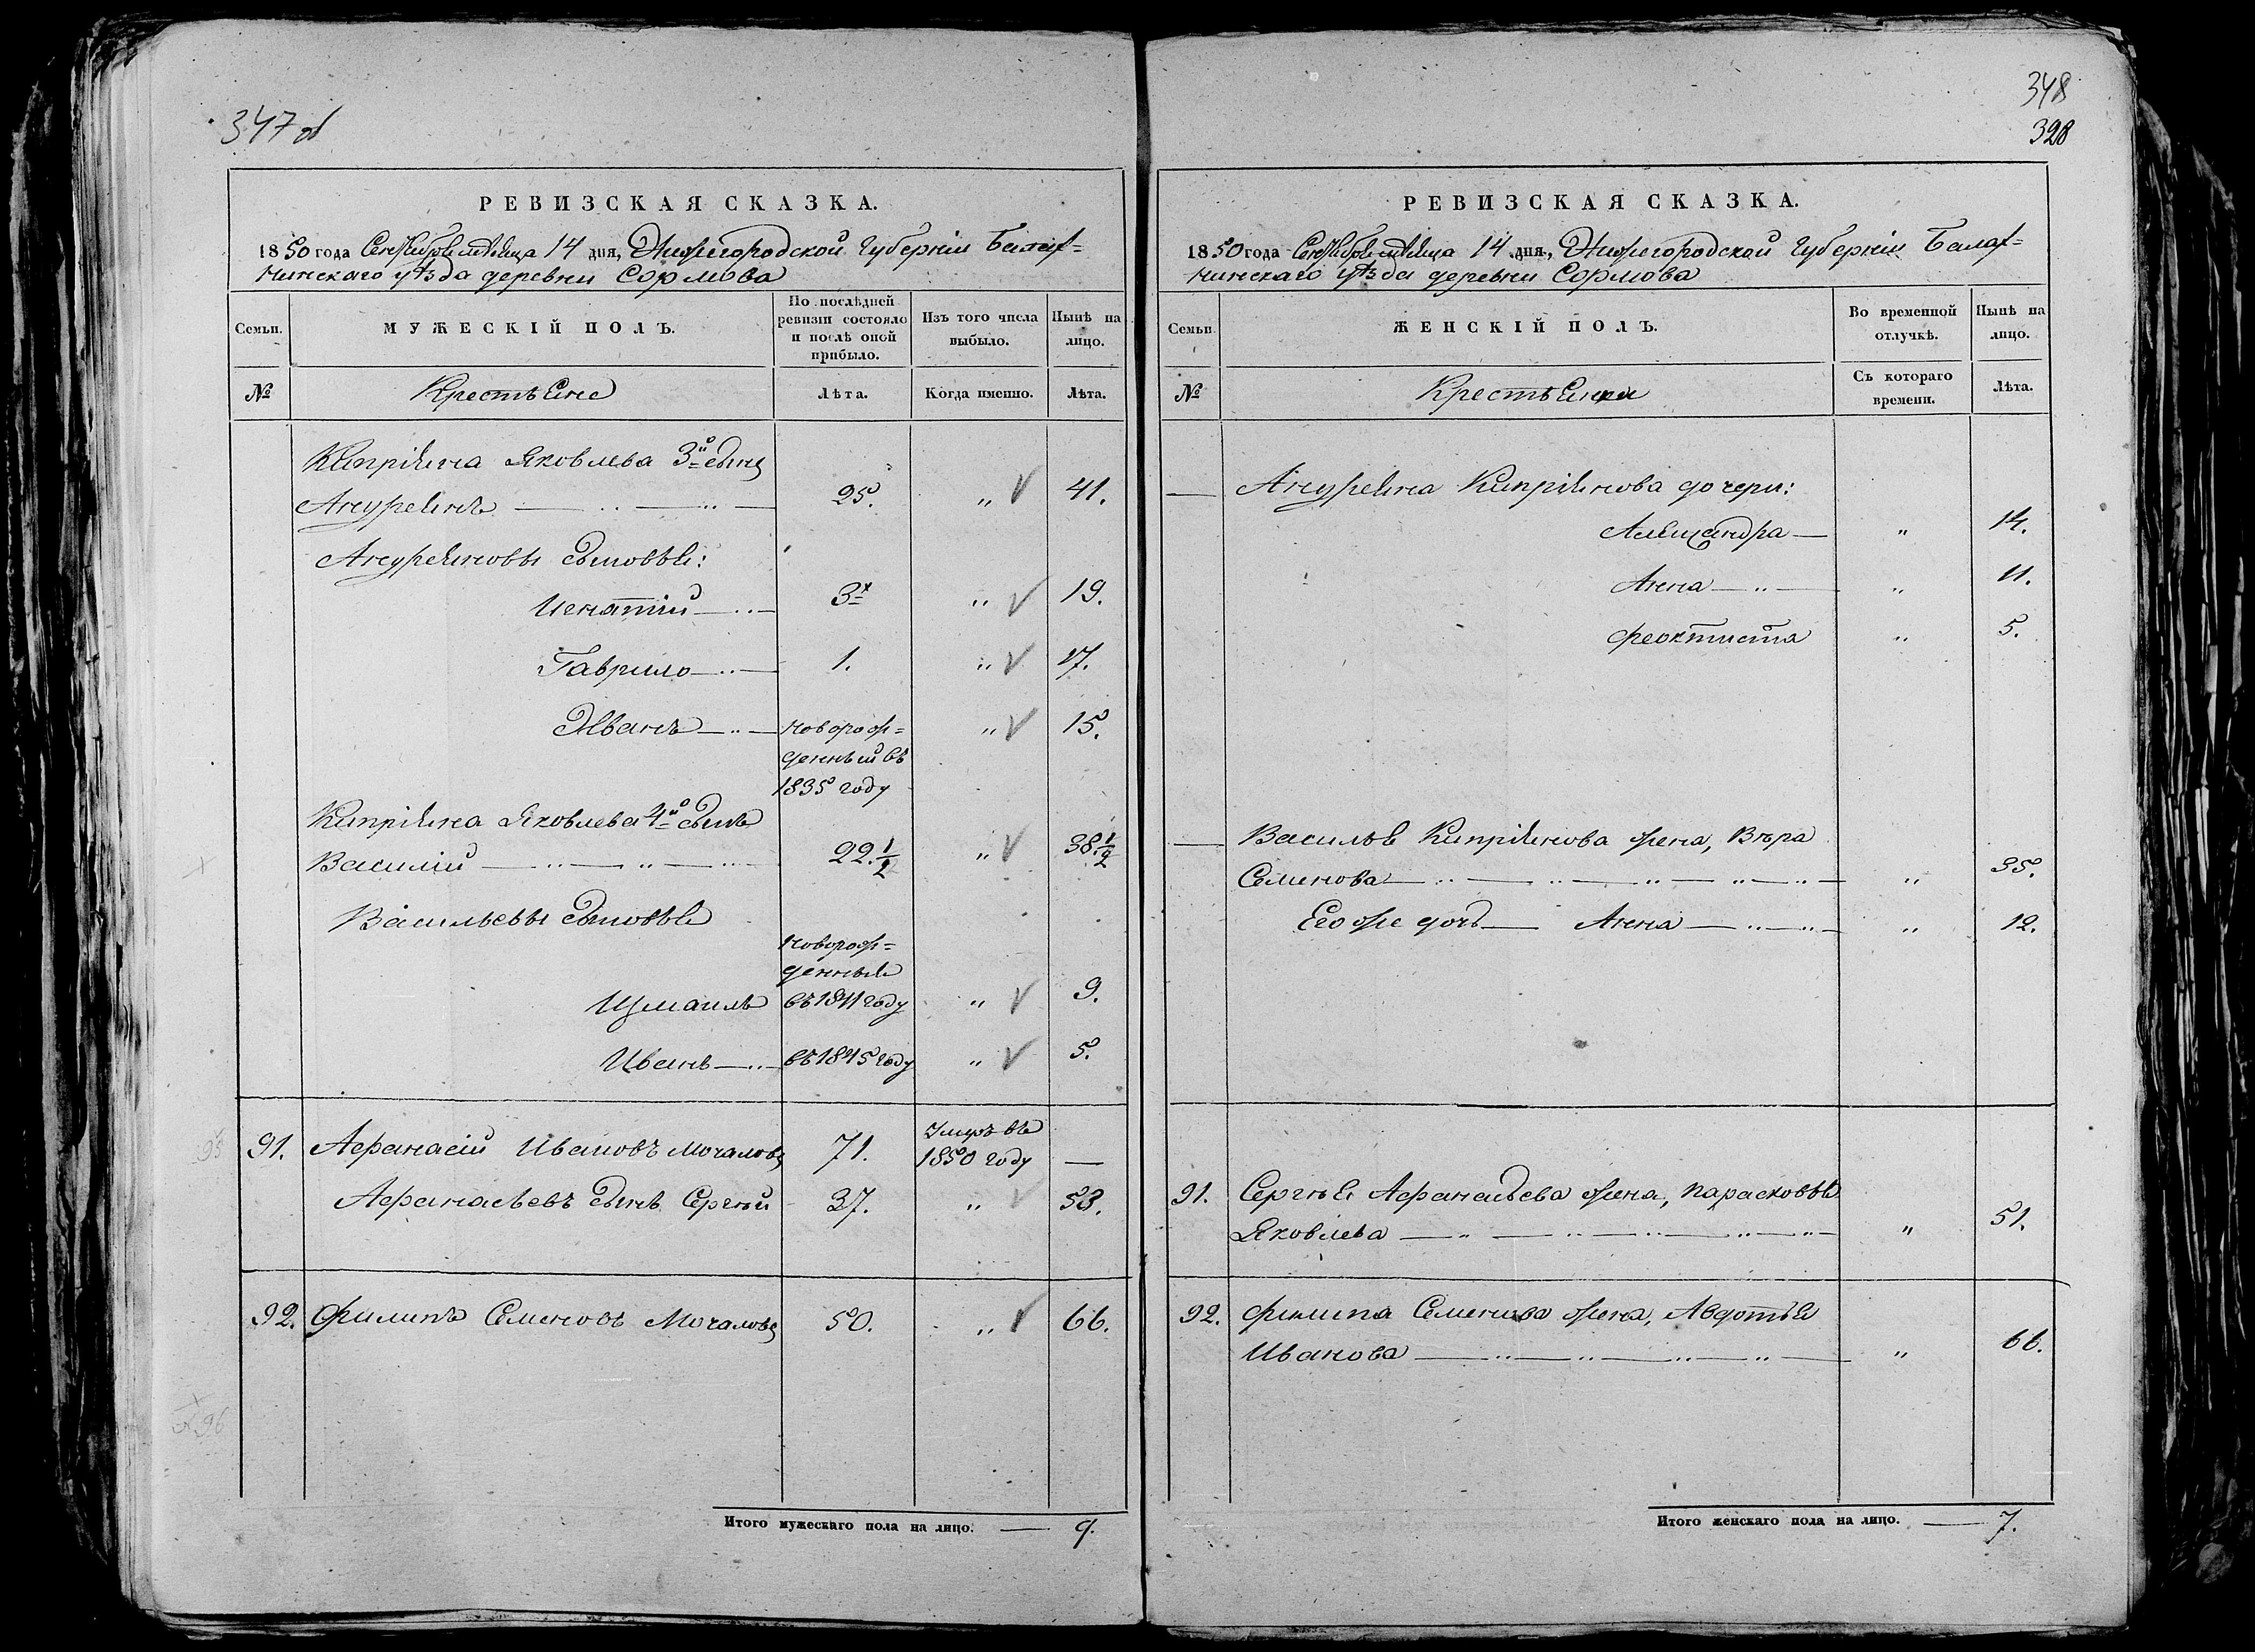 347 об
РЕВИЗСКАЯ СКАЗКА.
1850 года Сентября мѣсяца 14 дня, Нижегородской Губерніи Балах=
нинскаго уѣзда деревни Сормова
Семьи.
МУЖЕСКІЙ ПОЛЪ.
По послѣдней
ревизіи состояло
и послѣ оной
прибыло.
Изъ того числа
выбыло.
Нынѣ на
лицо.
№
Крестьяне
Лѣта.
Когда именно.
Лѣта.
Кипріяна Яковлева 3й сынъ
Андреянъ 25. „ √ 41.
Андреяновы сыновья:
Игнатій 3х „ √ 19.
Гаврило 1. „ √ 17.
Иванъ новорож= „ √ 15.
денный въ
1835 году
Кипріяна Яковлева 4й сынъ
Василій 22.½ „ √ 38.½
Васильевы сыновья
новорож=
денныя
Измаилъ въ 1841 году „ √ 9.
Иванъ въ 1845 году „ √ 5.
95 91. Афанасій Ивановъ Мочаловъ 71. Умръ въ
1850 году —
Афанасьевъ сынъ Сергѣй 37. „ √ 53.
92. Филипъ Семеновъ Мочаловъ 50. „ √ 66.
96
Итого мужескаго пола на лицо. — 9.
348
328
РЕВИЗСКАЯ СКАЗКА.
1850 года Сентября мѣсяца 14 дня, Нижегородской Губерніи Балах=
нинскаго уѣзда деревни Сормова
Семьи
ЖЕНСКІЙ ПОЛЪ.
Во временной
отлучкѣ.
Нынѣ на
лицо.
№
Крестьянки
Съ котораго
времени.
Лѣта.
— Андреяна Кипріянова дочери:
Александра — „ 14.
Анна „ 11.
Феоктиста „ 5.
— Василья Кипріянова жена, Вѣра
Семенова „ 35.
Его же дочь — Анна „ 12.
91. Сергѣя Афанасьева жена, Парасковья
Яковлева „ 51.
92. Филипа Семенова жена, Авдотья
Иванова „ 66.
Итого женскаго пола на лицо. — 7.